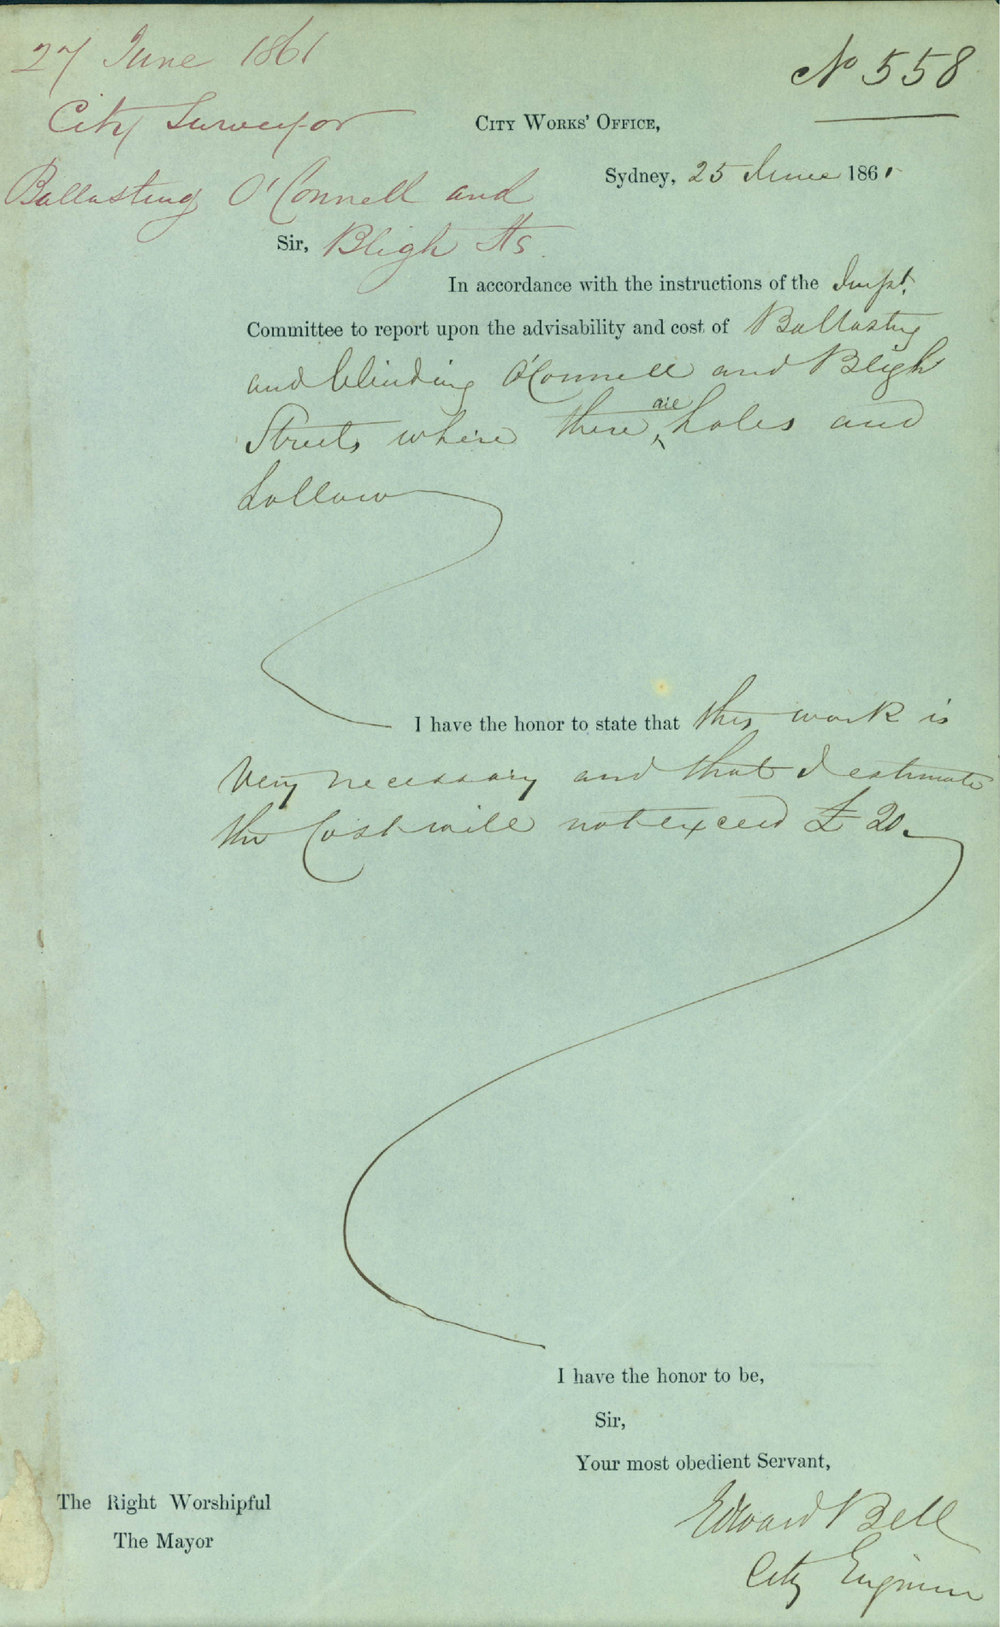 27 June 1861
City Surveyor
Ballasting O'Connell and
Bligh Sts
No 558
CITY WORKS' OFFICE,
Sydney, 25 June 1861
Sir,
In accordance with the instructions of the Impt.
Committee to report upon the advisability and cost of Ballasting
and blinding O'Connell and Bligh
Streets where there are holes and
hollow
I have the honor to state that this work is
very necessary and that I estimate
the Cost will not exceed £20.
I have the honor to be,
Sir,
Your most obedient Servant,
Edward Bell
City Engineer
The Right Worshipful
The Mayor